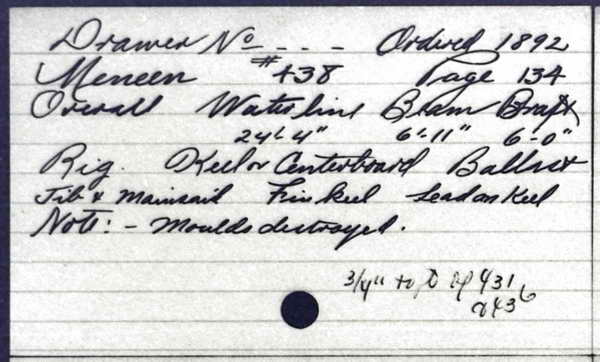 Drawer No - - - Ordered 1892
Meneen #438 Page 134
Overall Waterline Beam Draft
24'-4" 6'-11" 6'-0"
Rig. Keel or Centerboard Ballast
Jib & Mainsail Fin keel Lead on Keel
Note: - Moulds destroyed.
3/4" to ft Of 431
&436